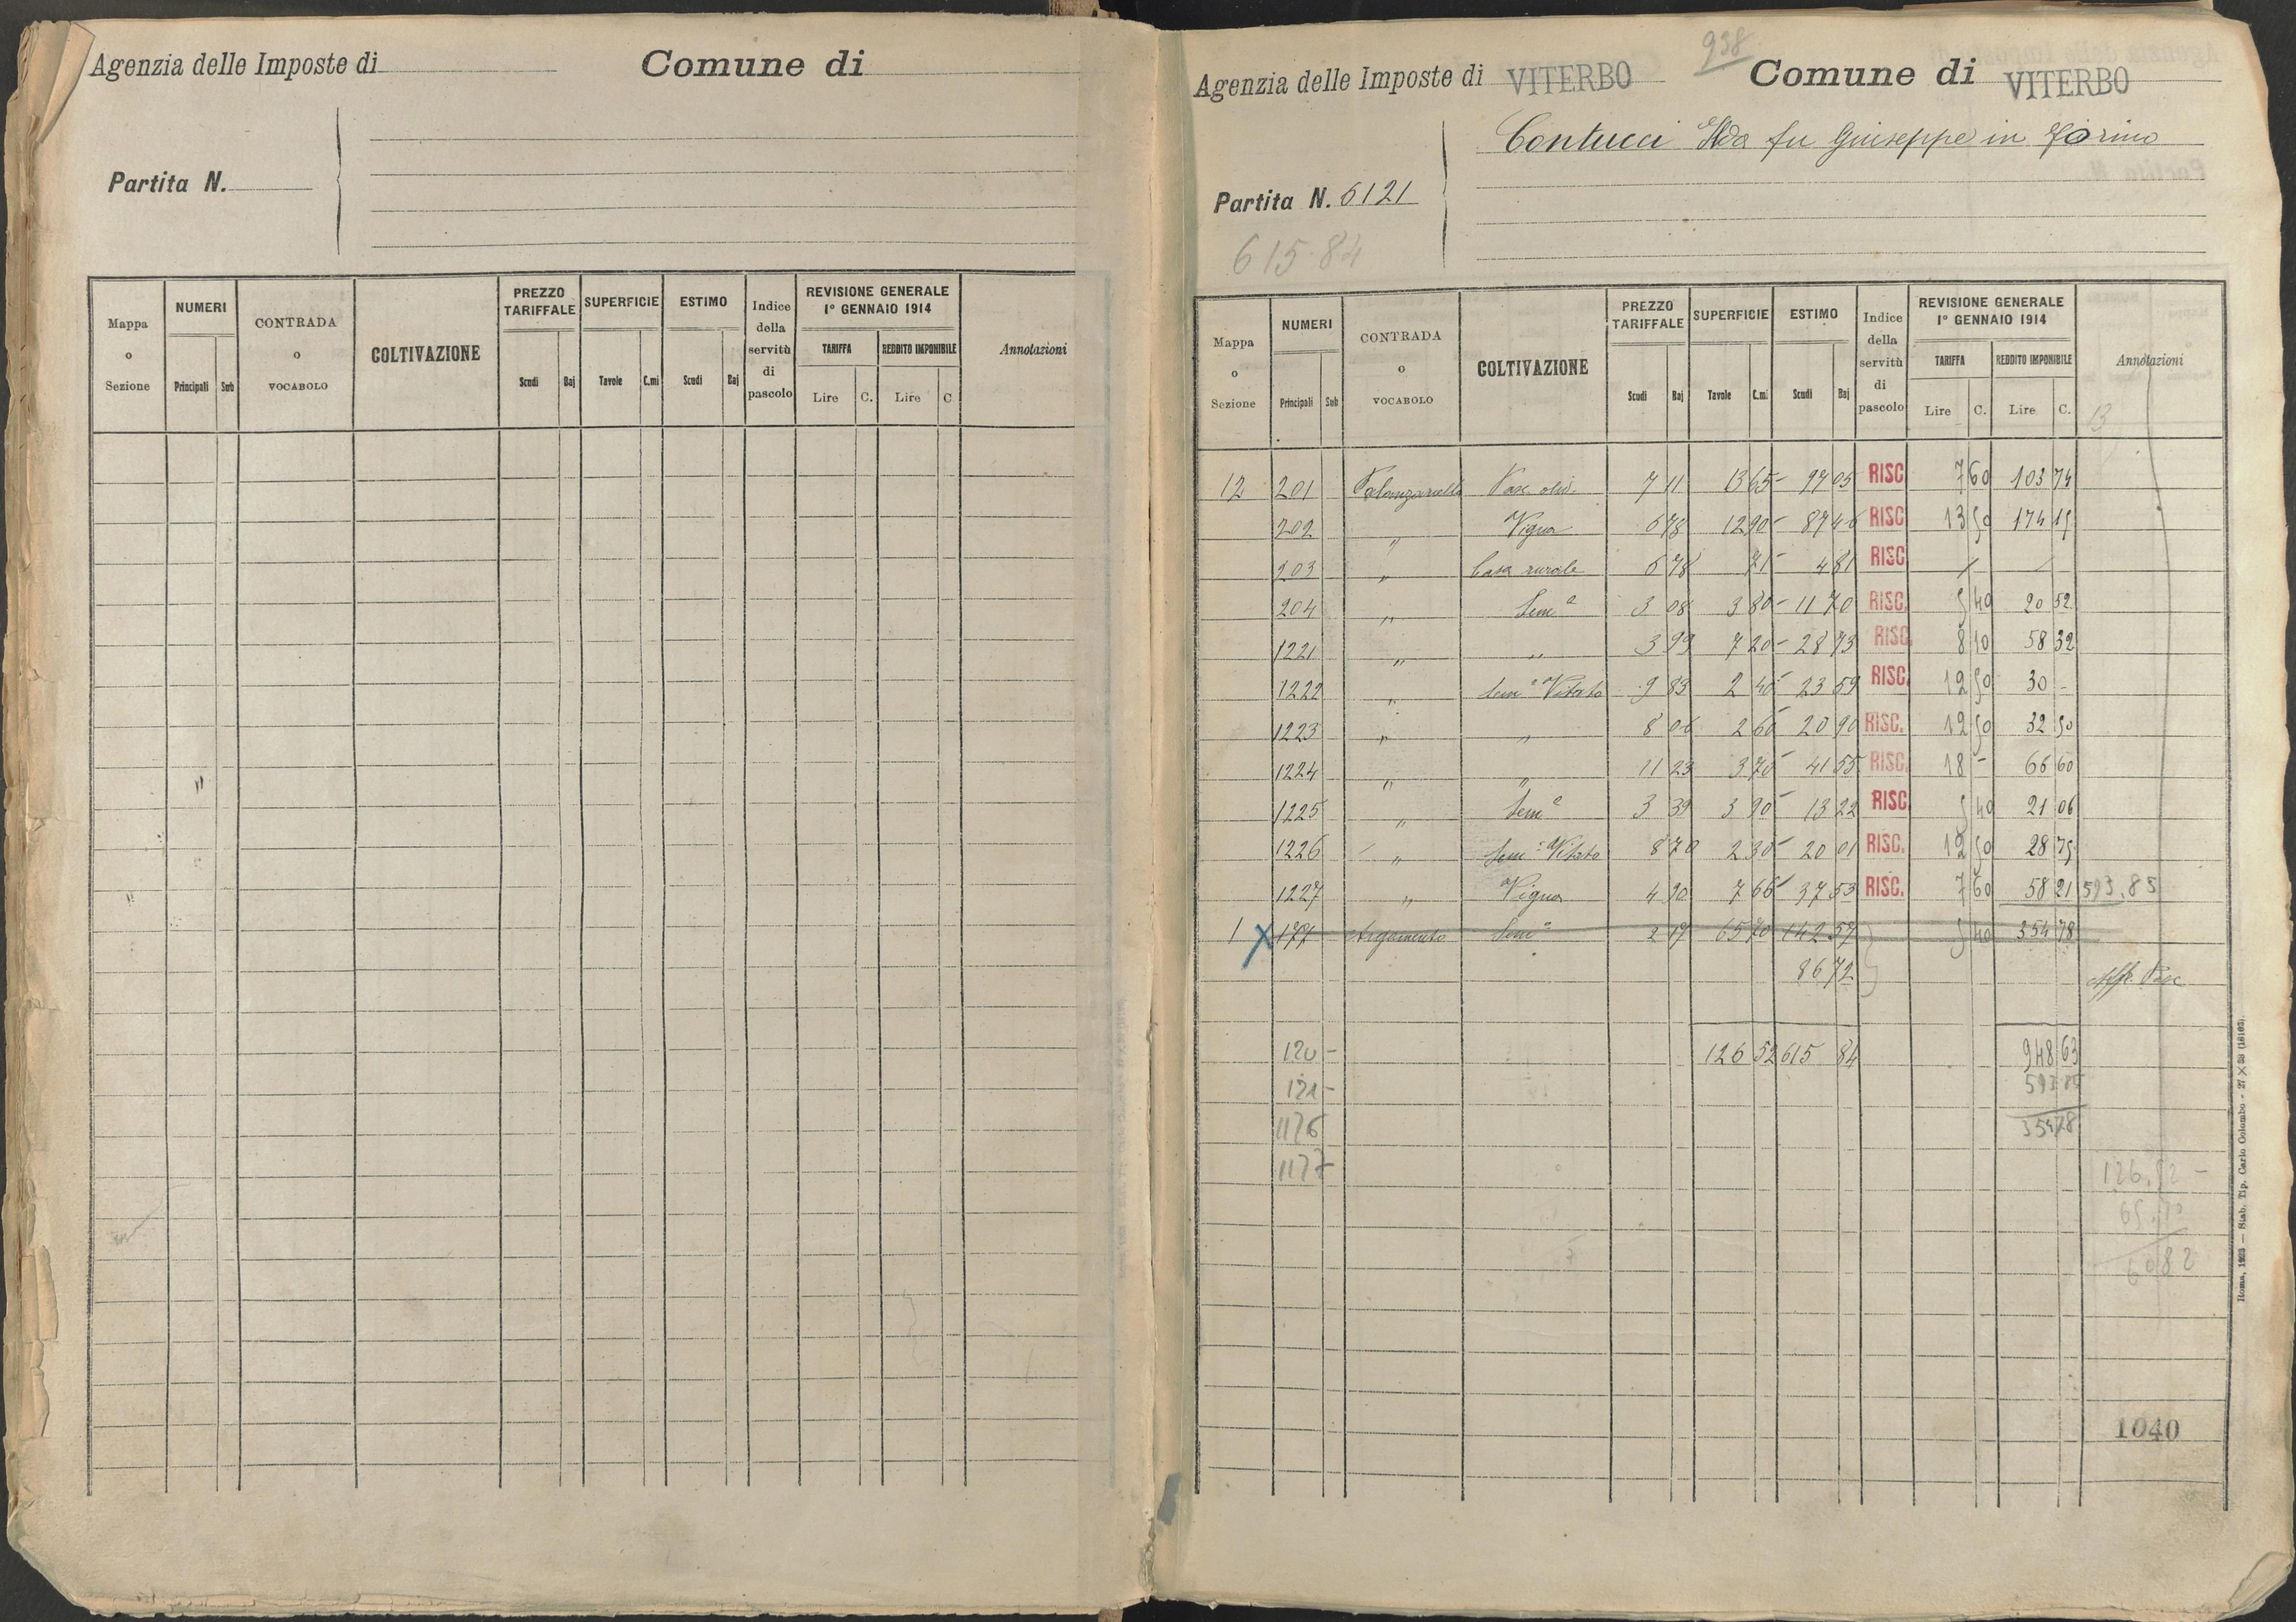 Agenzia delle Imposte di
Comune di
Partita N.
Mappa o Sezione
NUMERI
Principali Sub
CONTRADA o VOCABOLO
COLTIVAZIONE
PREZZO TARIFFALE
Scudi Baj
SUPERFICIE
Tavole C.mi
ESTIMO
Scudi Baj
Indice della servitù di pascolo
REVISIONE GENERALE 1° GENNAIO 1914
TARIFFA
Lire C.
REDDITO IMPONIBILE
Lire C
Annotazioni
938
Agenzia delle Imposte di VITERBO Comune di VITERBO
Contucci Ilda fu Giuseppe in Torino
Partita N. 6121
615.84
Mappa o Sezione
NUMERI
Principali Sub
CONTRADA o VOCABOLO
COLTIVAZIONE
PREZZO TARIFFALE
Scudi Baj
SUPERFICIE
Tavole C.mi
ESTIMO
Scudi Baj
Indice della servitù di pascolo
REVISIONE GENERALE 1° GENNAIO 1914
TARIFFA
Lire C.
REDDITO IMPONIBILE
Lire C.
Annotazioni
13
12 201 Pasc. oliv. 7 11 13 65 97 05 RISC 7 60 103 74
202 " Vigna 6 78 12 90 87 46 RISC 13 50 174 15
203 " Casa rurale 6 78 71 4 81 RISC / /
204 " Sem.o 3 08 3 80 11 70 RISC. 5 40 20 52
1221 " " 3 99 7 20 28 73 RISC. 8 10 58 32
1222 " Sem.o Vitato 9 83 2 40 23 59 RISC. 12 50 30 -
1223 " " 8 06 2 60 20 90 RISC. 12 50 32 50
1224 " " 11 23 3 70 41 55 RISC. 18 - 66 60
1225 " Sem.o 3 39 3 90 13 22 RISC 5 40 21 06
1226 " Sem.o Vitato 8 70 2 30 20 01 RISC. 12 50 28 75
1227 " Vigna 4 90 7 66 37 53 RISC. 7 60 58 21 593.85
1 X 177 Argamento Sem.o 2 17 65 70 142 57 5 40 354 78
86 72 Aff. Pasc
120 - 126 52 615 84 948 63
121 - 593 85
1176 354 78
1177
126.52 -
65.70
60 82
1040
Roma, 1923 — Stab. Tip. Carlo Colombo - 27 × 38 (16103).